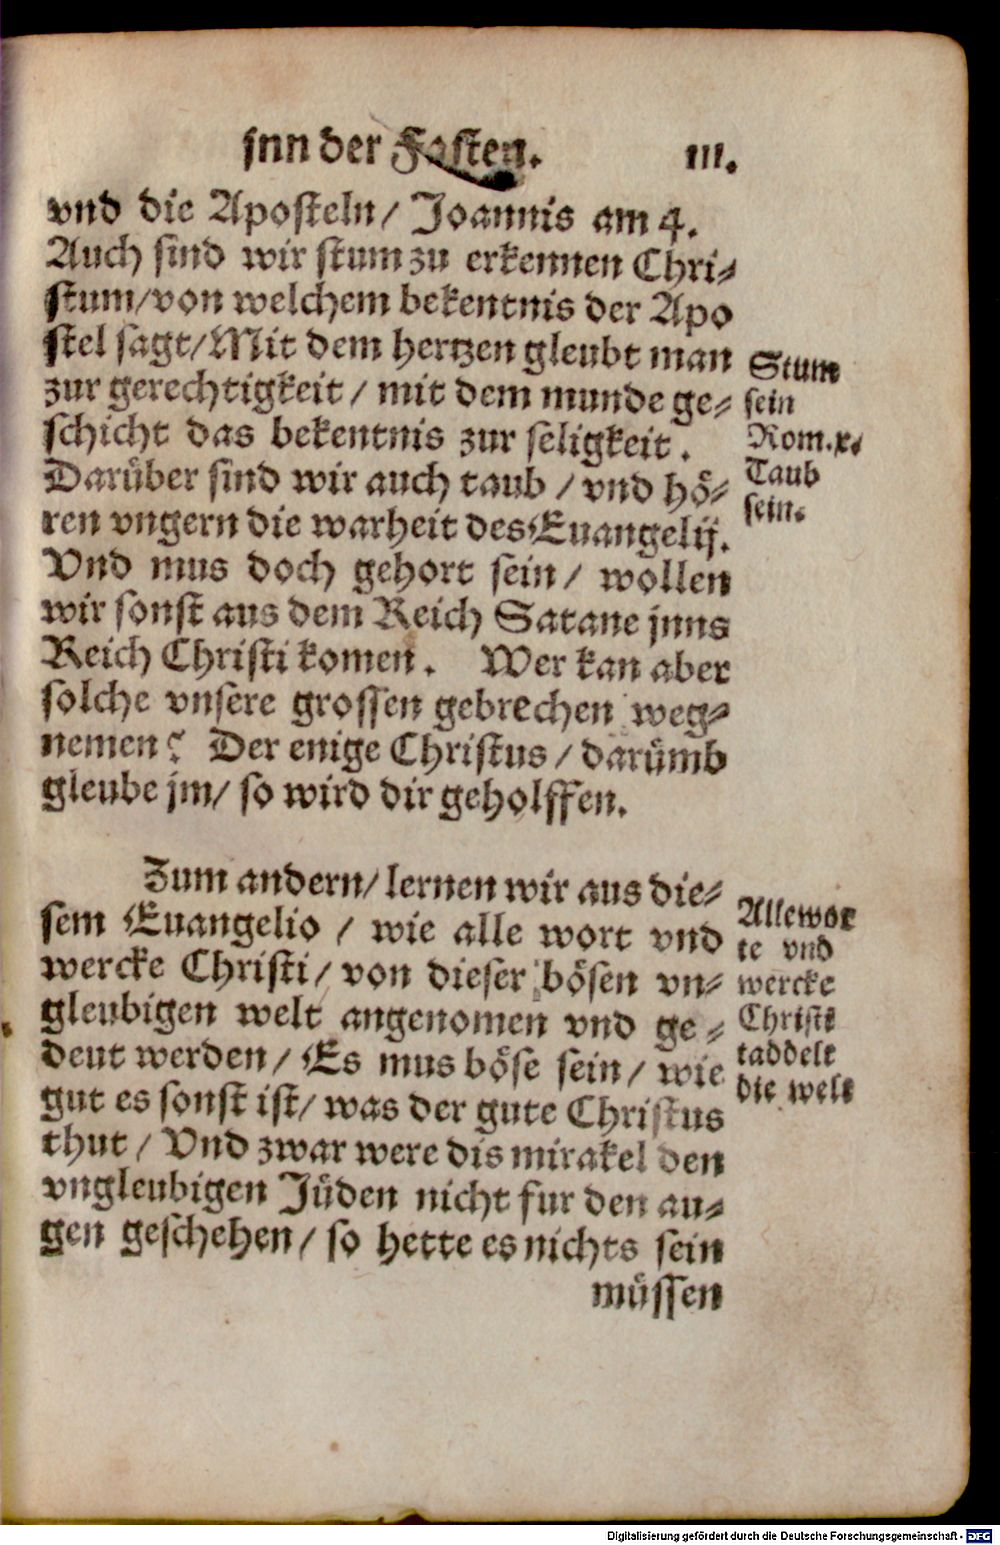 jnn der Fasten. III.
vnd die Aposteln/ Joannis am 4.
Auch sind wir stum zu erkennen Chri⸗
stum/von welchem bekentnis der Apo
stel sagt/Mit dem hertzen gleubt man
zur gerechtigkeit / mit dem munde ge⸗
schicht das bekentnis zur seligkeit.
Darüber sind wir auch taub / vnd hö⸗
ren vngern die warheit des Euangelij.
Vnd mus doch gehort sein / wollen
wir sonst aus dem Reich Satane jnns
Reich Christi komen. Wer kan aber
solche vnsere grossen gebrechen weg⸗
nemen? Der enige Christus / darümb
gleube jm/ so wird dir geholffen.
Stum
sein
Rom.x.
Taub
sein.
Zum andern/ lernen wir aus die⸗
sem Euangelio / wie alle wort vnd
wercke Christi/ von dieser bösen vn⸗
gleubigen welt angenomen vnd ge⸗
deut werden/ Es mus böse sein/ wie
gut es sonst ist/ was der gute Christus
thut / Vnd zwar were dis mirakel den
vngleubigen Jüden nicht fur den au⸗
gen geschehen/ so hette es nichts sein
müssen
Alle wor
te vnd
wercke
Christi
taddelt
die welt
Digitalisierung gefördert durch die Deutsche Forschungsgemeinschaft - DFG